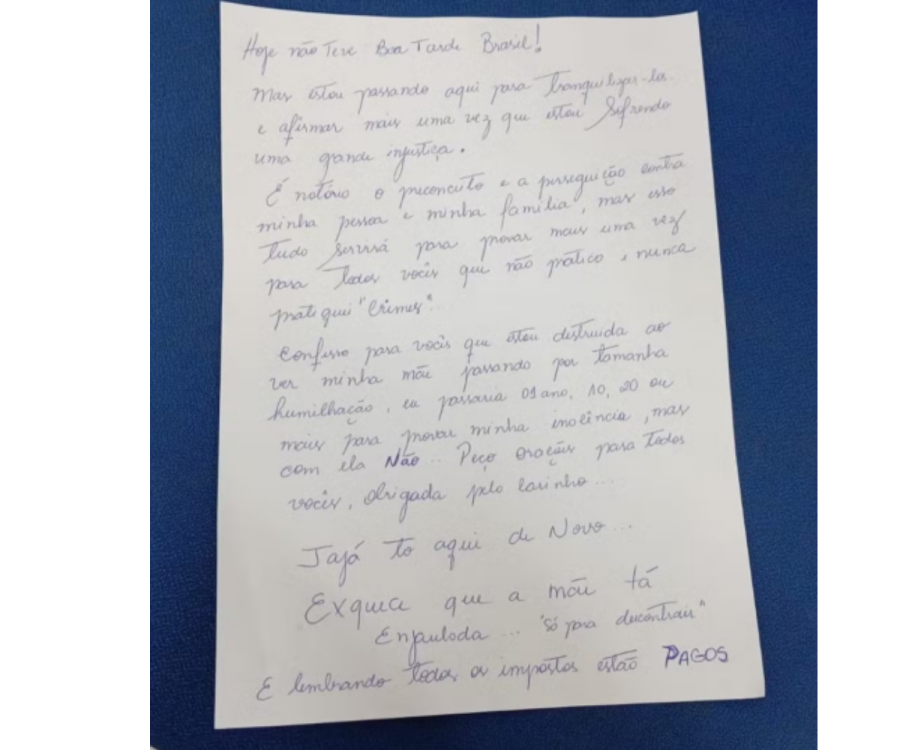 Hoje não Teve Boa Tarde Brasil!
Mas estou passando aqui para Tranquilizar-los
e afirmar mais uma vez que estou Sofrendo
uma grande injustiça.
É notório o preconceito e a perseguição contra
minha pessoa e minha família, mas isso
Tudo Servirá para provar mais uma vez
para Todos vocês que não pratico e nunca
pratiquei "Crimes"...
Confesso para vocês que estou destruida ao
ver minha mãe passando por tamanha
humilhação, eu passaria 01 ano, 10, 20 ou
mais para provar minha inocência, mas
com ela Não... Peço orações para todos
vocês, obrigada pelo Carinho...
Jajá to aqui de Novo...
Exquece que a mãe tá
Enjaulada... "só para descontrair"
E lembrando todos os impostos estão PAGOS